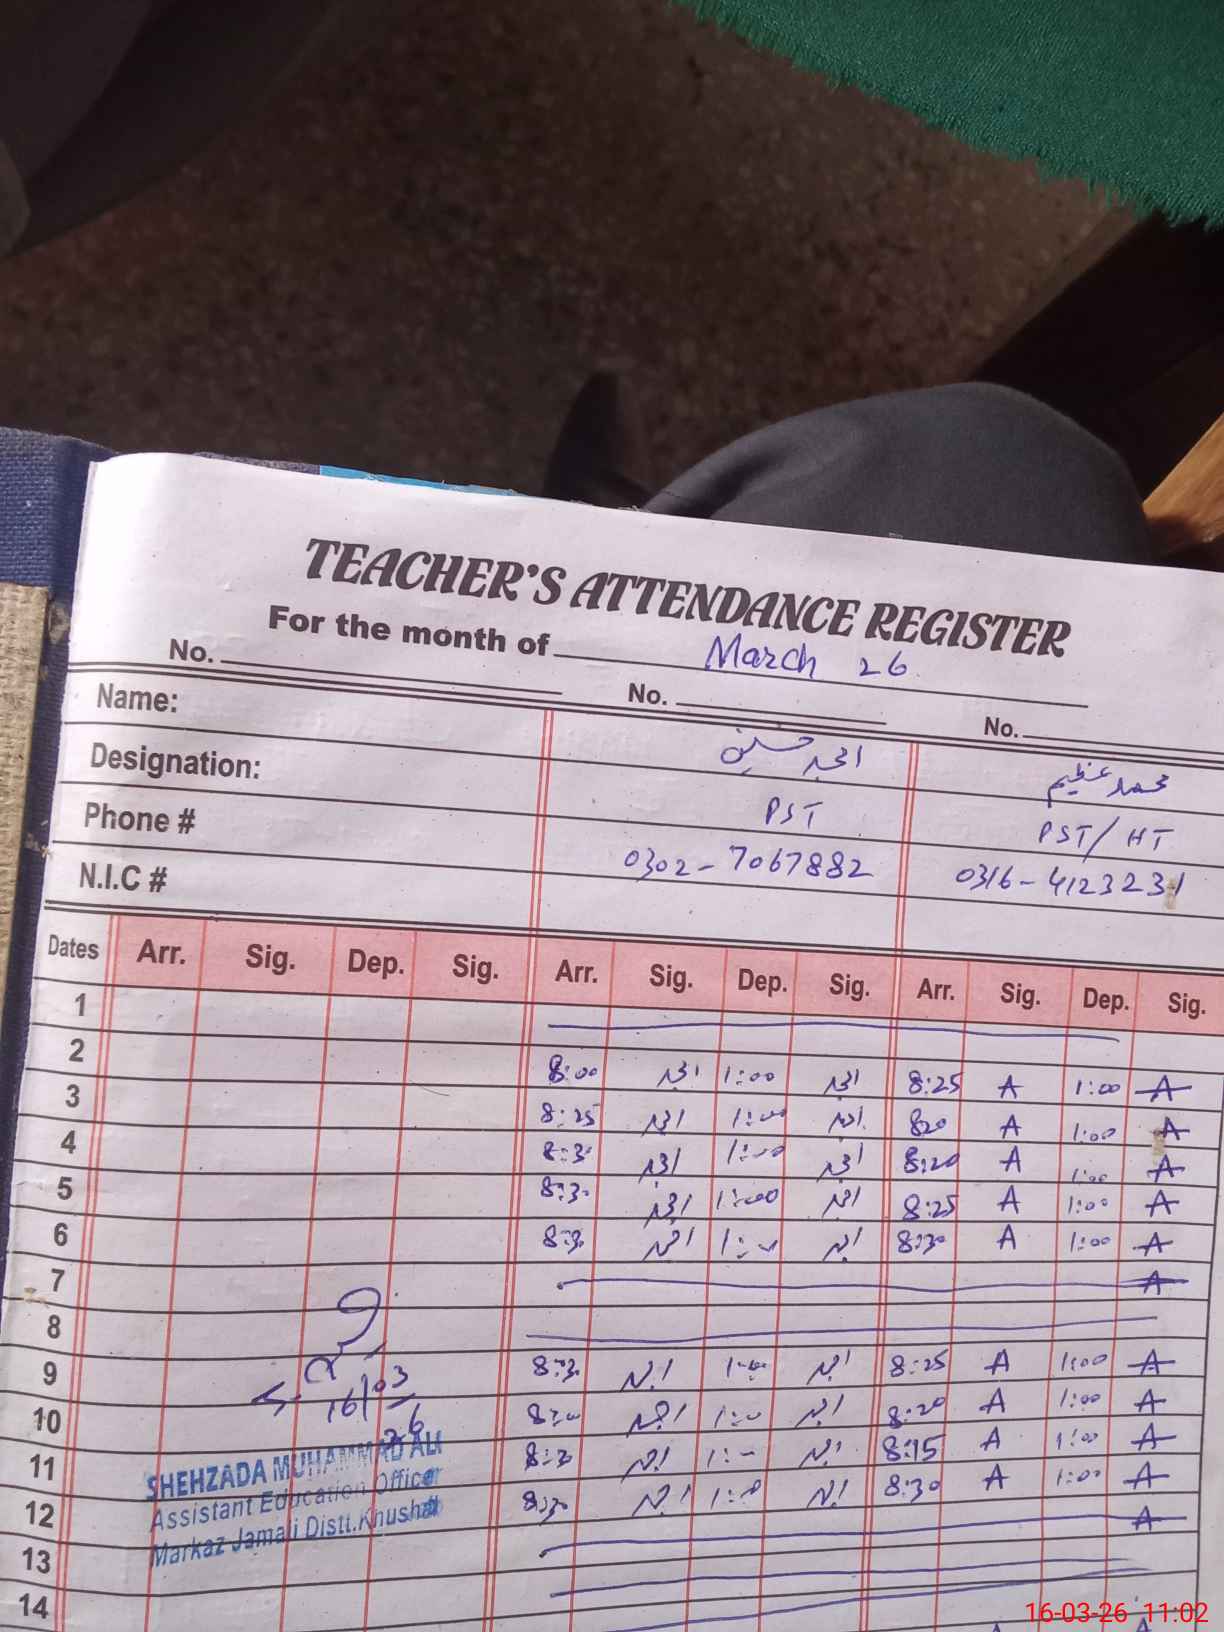 TEACHER'S ATTENDANCE REGISTER
For the month of March 26
No. No. No.
Name: امجد حسین محمد عظیم
Designation: PST PST/HT
Phone # 0302-7067882 0316-4123231
N.I.C #
Dates Arr. Sig. Dep. Sig. Arr. Sig. Dep. Sig. Arr. Sig. Dep. Sig.
1
2 8:00 امجد 1:00 امجد 8:25 A 1:00 A
3 8:25 امجد 1:00 امجد 820 A 1:00 A
4 8:30 امجد 1:00 امجد 8:20 A 1:00 A
5 8:30 امجد 1:00 امجد 8:25 A 1:00 A
6 8:30 امجد 1:00 امجد 8:30 A 1:00 A
7 A
8
9 8:30 امجد 1:00 امجد 8:25 A 1:00 A
10 امجد 1:00 امجد 8:20 A 1:00 A
11 8:30 امجد 1:00 امجد 8:15 A 1:00 A
12 8:30 امجد 1:00 امجد 8:30 A 1:00 A
A
13
14
16/03
26
SHEHZADA MUHAMMAD ALI
Assistant Education Officer
Markaz Jamali Distt.Khushab
16-03-26 11:02